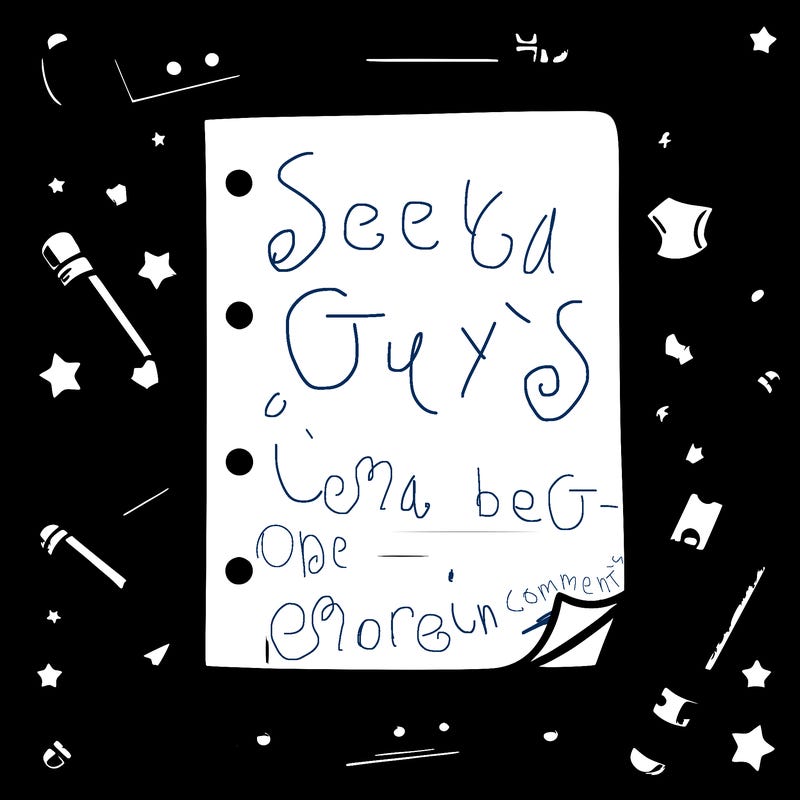 See Ya
Guy`s
i`ma be G-
one
more in comment`s